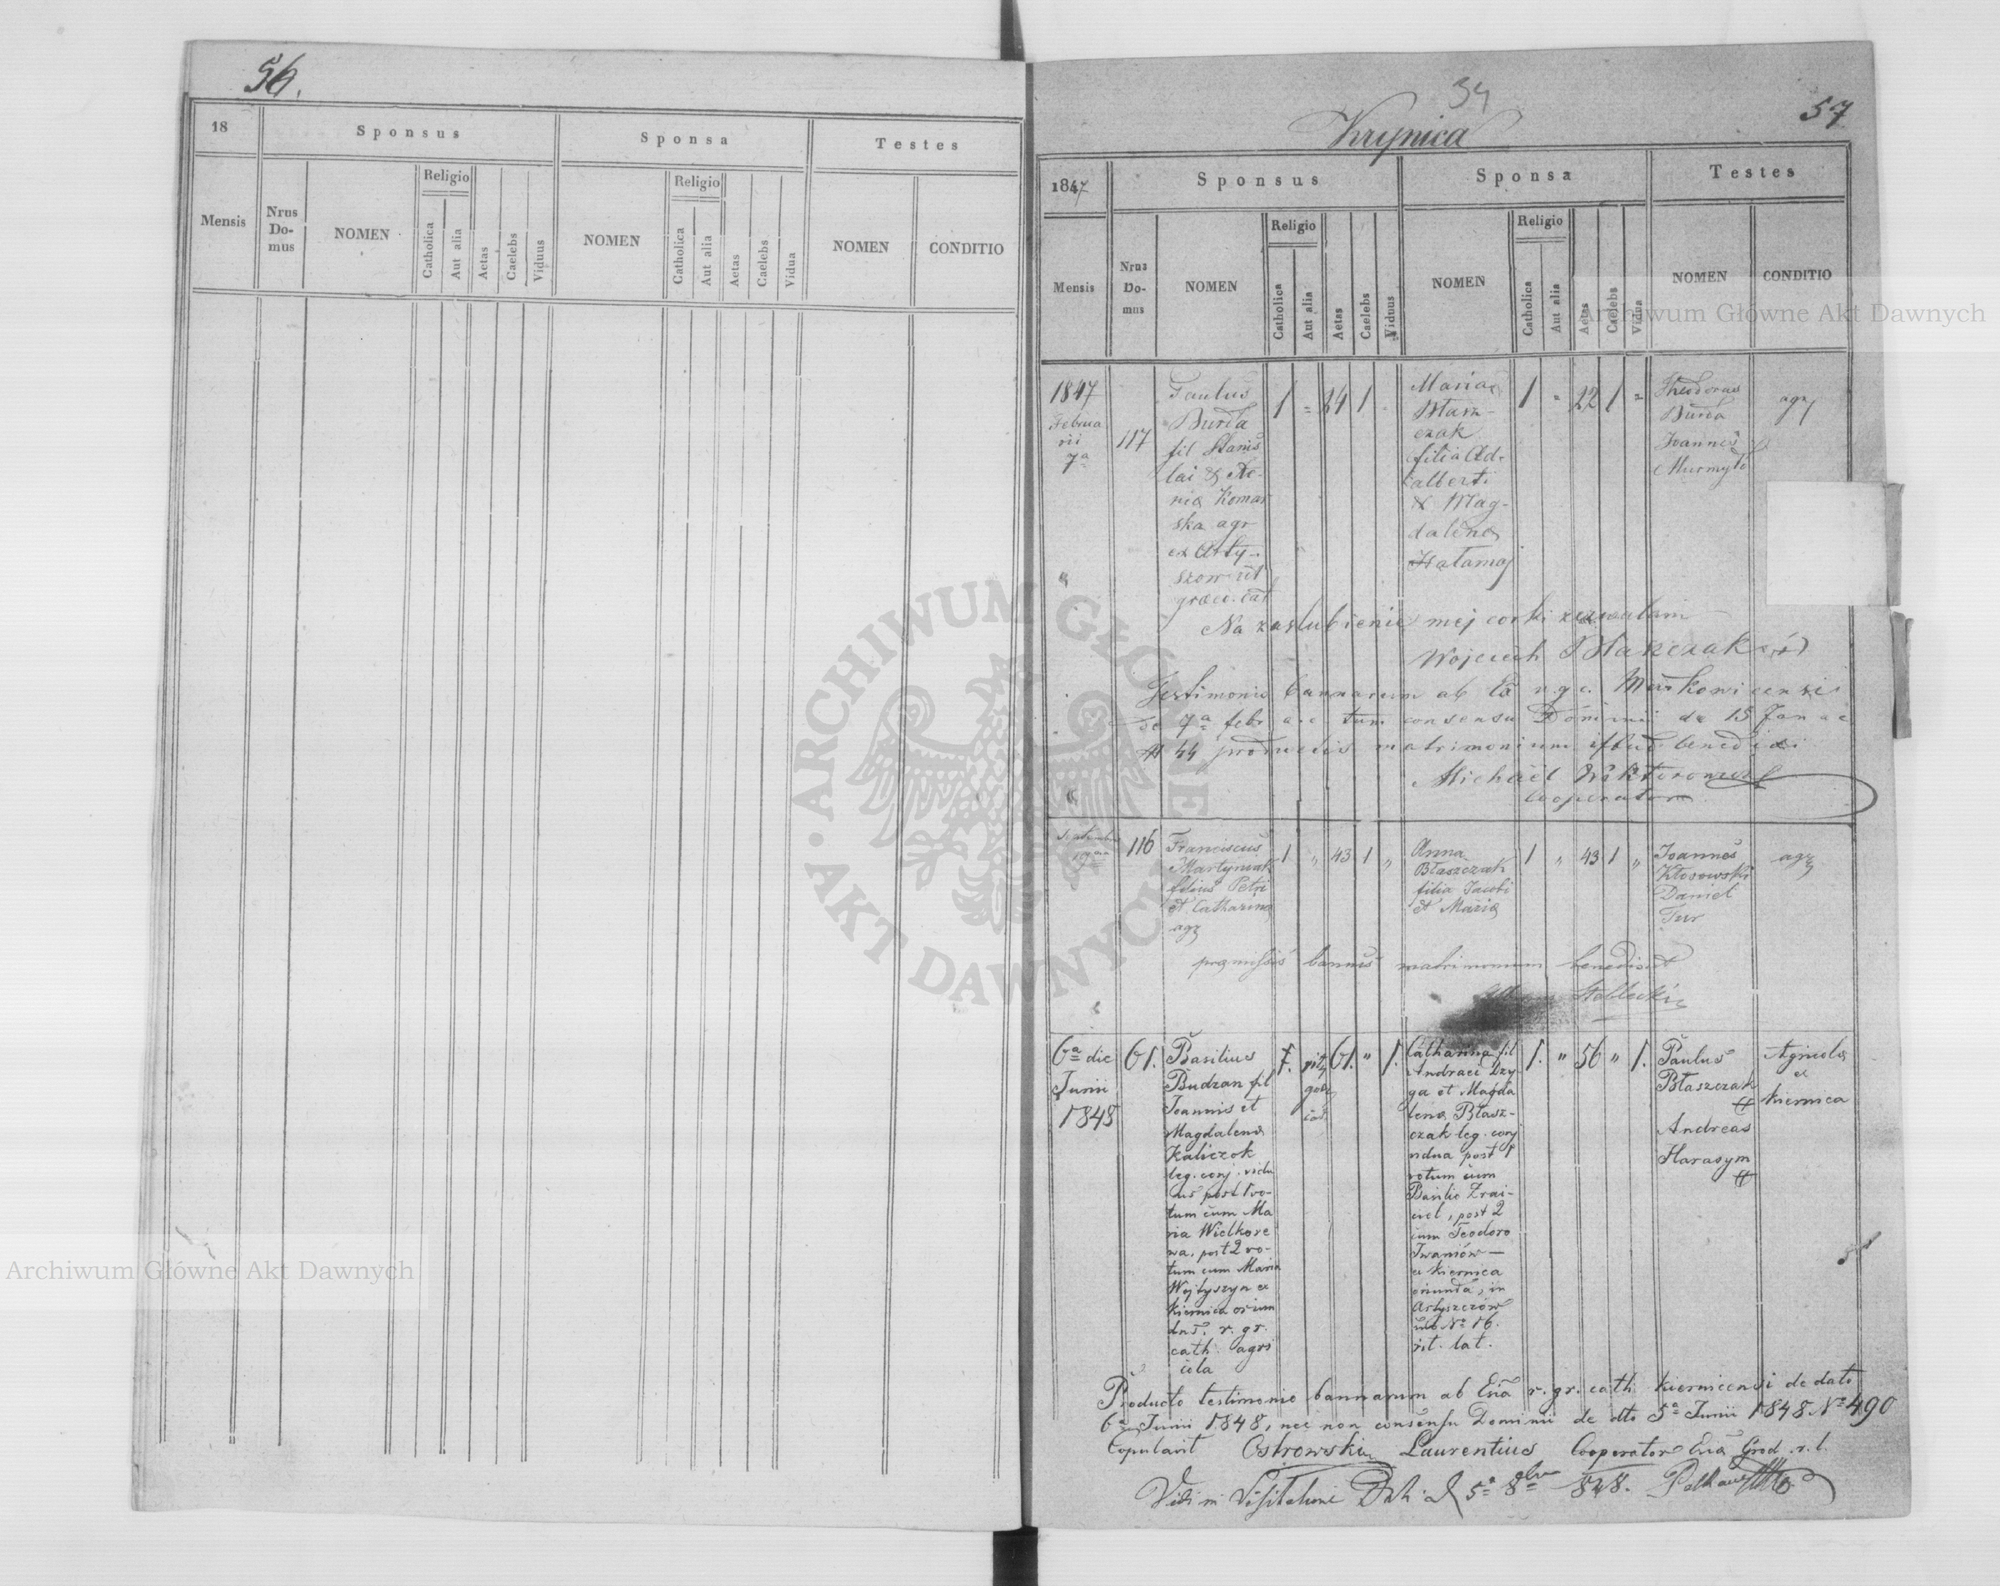 56.
18
Sponsus
Sponsa
Testes
Mensis
Nrus Do- mus
NOMEN
Religio
Catholica
Aut alia
Aetas
Caelebs
Viduus
NOMEN
Religio
Catholica
Aut alia
Aetas
Caelebs
Vidua
NOMEN
CONDITIO
34
57
Krynica
1847
Sponsus
Sponsa
Testes
Mensis
Nrus Do- mus
NOMEN
Religio
Catholica
Aut alia
Aetas
Caelebs
Viduus
NOMEN
Religio
Catholica
Aut alia
Aetas
Caelebs
Vidua
NOMEN
CONDITIO
1847
Februa
rii
7a
117
Paulus
Burda
fil Stanis
lai &
Komar
ska agr
ex Arty-
szow rit
graec. cat
1
"
24
1
Maria
Błasz-
czak
filia Ad-
alberti
& Mag-
dalena
Hałamaj
1
"
22
1
"
Theodorus
Burda
Joannes
agr
Na zaslubienie mej corki zezwalam
Wojciech Błaszczak
Testimonio bannorum ab
de 7a febr a.c. tum consensu Dominii de 15 Jan ac
N 44 productis matrimonium istud benedixi
Michaël
Cooperator
116
Franciscus
Martyniak
filius Petri
et Catharina
agr
1
"
43
1
"
Anna
Błaszczak
filia Jacobi
et Maria
1
"
43
1
"
Joannes
Kłosowski
Daniel
Tur
agr
praemissis bannis matrimonium benedixit
6a die
Junii
1848
61.
Basilius
Budzan fil
Joannis et
Magdalena
Kaliczok
leg. conj. vidu
us post 1 vo-
tum cum Ma
ria Wielkore
wa, post 2 vo-
tum cum Maria
Wojtyszyn ex
Kiernica oriun
dus. r. gr.
cath agri
cola
1.
61.
"
1.
Catharina fil
Andraei Dzy
ga et Magda
lena Błasz-
czak leg. conj
vidua post 1
votum cum
Basilio
post 2
cum Teodoro
Iwaniów —
ex Kiernica
oriunda, in
Artyszczów
sub No 16.
rit. lat.
1.
"
56
"
1.
Paulus
Błaszczak
Andreas
Harasym
Agricola
ex
Kiernica
Producto testimonio bannorum ab Ecia r. gr. cath. Kiernicensi de dato
6a Junii 1848, nec non consensu Dominii de dto 5a Junii 1848 No 490
Copulavit Ostrowski Laurentius Cooperator Grod. r. l.
Vidi in Visitatione 5a 8bris 848.
Archiwum Główne Akt Dawnych
Archiwum Główne Akt Dawnych
ARCHIWUM GŁÓWNE AKT DAWNYCH